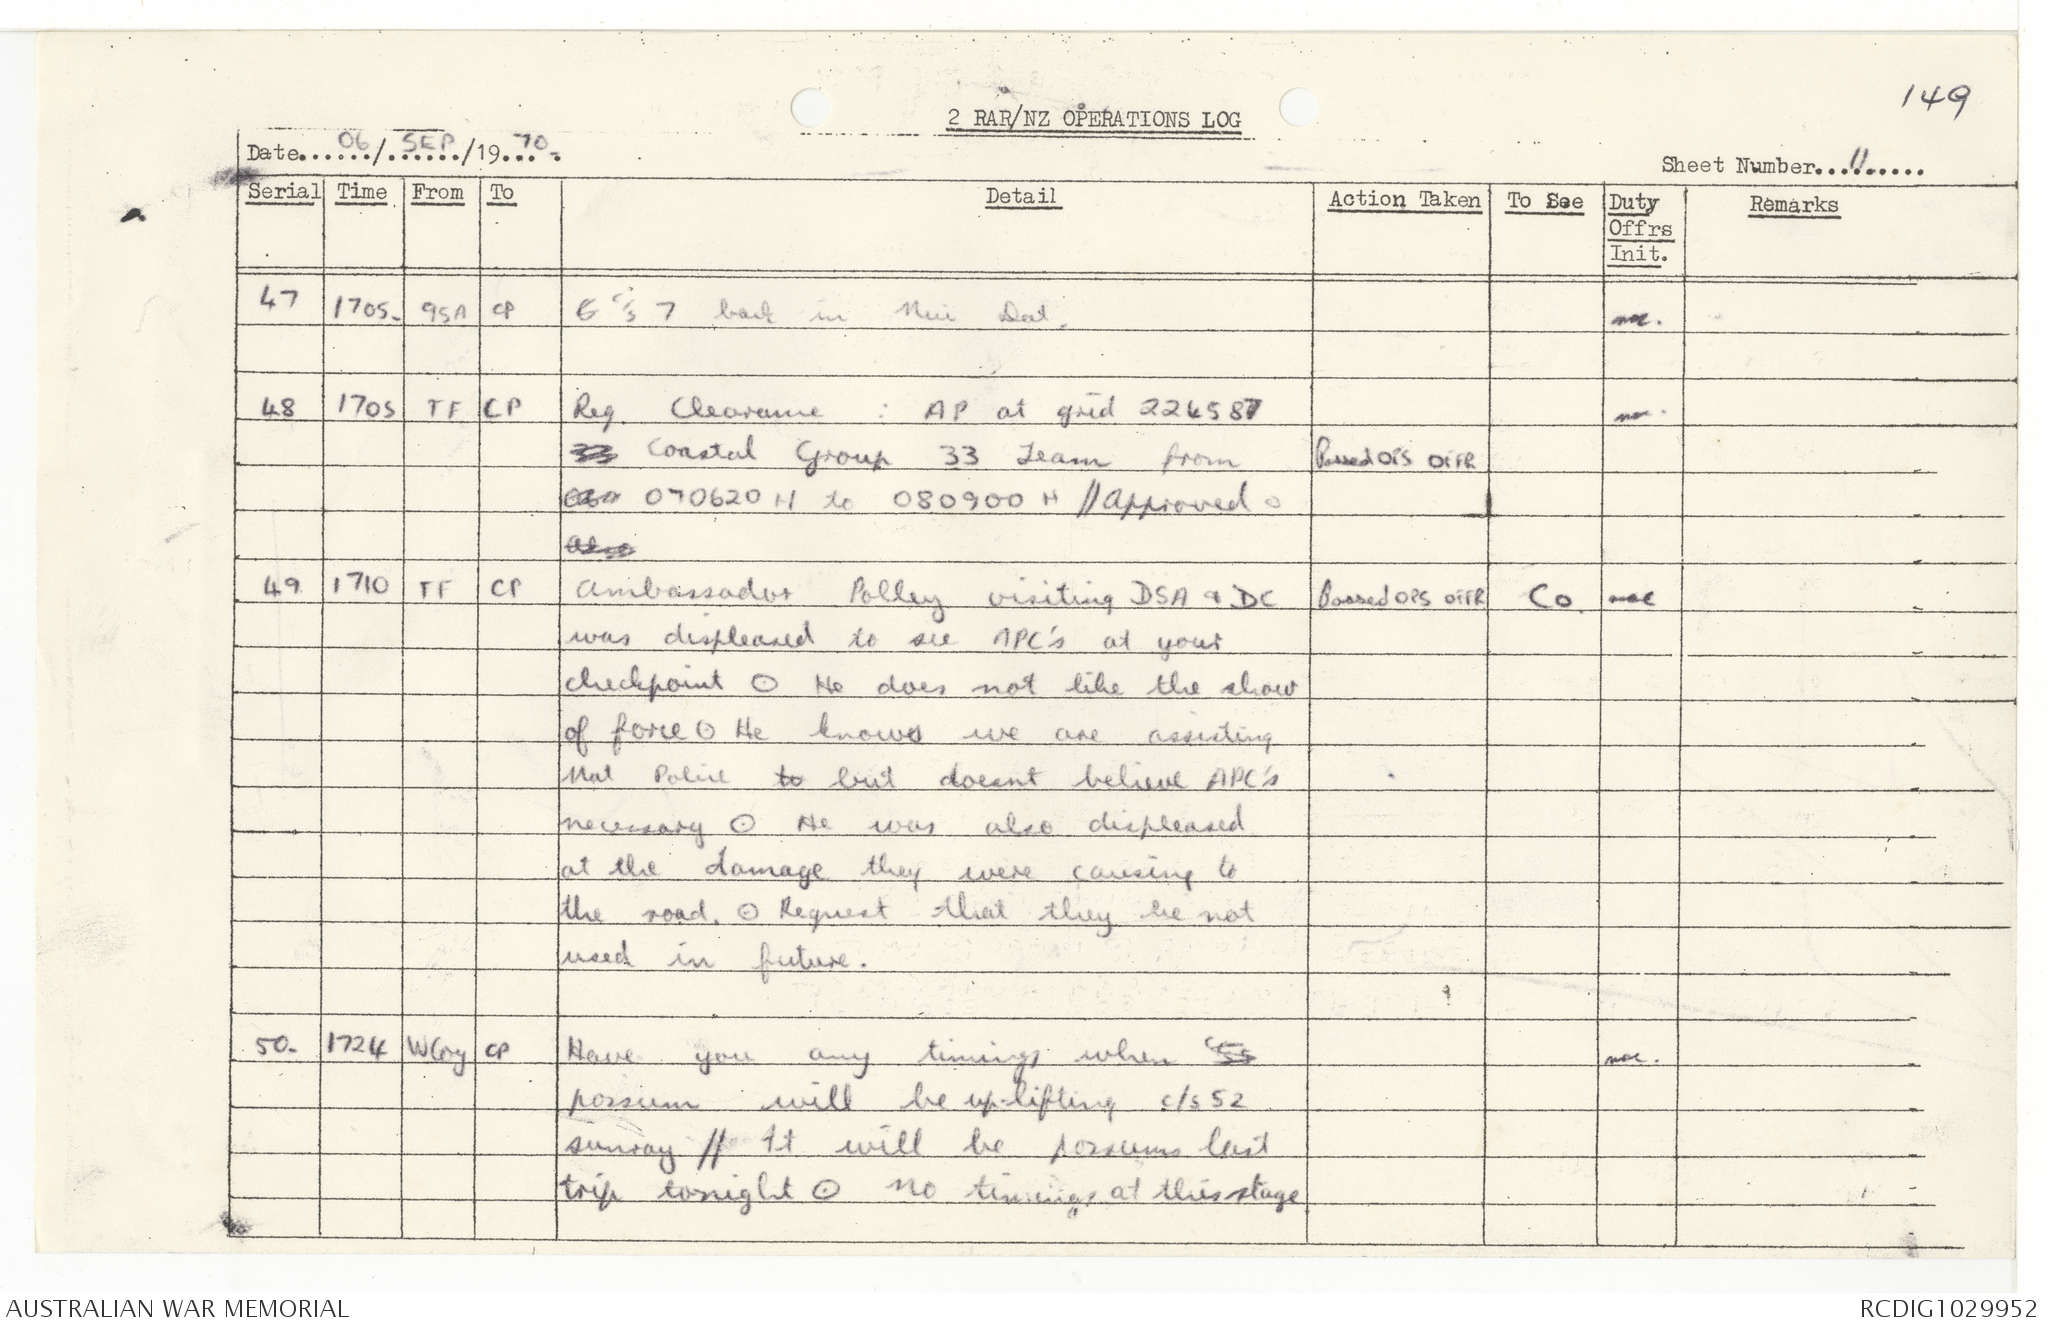 149
2 RAR/NZ OPERATIONS LOG
Date 06/SEP/1970.
Sheet Number 11
Serial Time From To Detail Action Taken To See Duty Offrs Init. Remarks
47 1705- 95A CP 6 c/s 7 back in Nui Dat.
48 1705 TF CP Req Clearance : AP at grid 224587
33 Coastal Group 33 Team from Passed OPS OFFR
070620 H to 080900 H // Approved
also
49 1710 TF CP Ambassador Polley visiting DSA & DC Passed OPS OFFR CO.
was displeased to see APC's at your
checkpoint ⊙ He does not like the show
of force ⊙ He knows we are assisting
Nat Police to but doesnt believe APC's
necessary ⊙ He was also displeased
at the damage they were causing to
the road. ⊙ Request that they be not
used in future.
50- 1724 CP Have you any timings when
possum will be up-lifting c/s 52
sunray // It will be possums last
trip tonight ⊙ No timings at this stage
AUSTRALIAN WAR MEMORIAL
RCDIG1029952